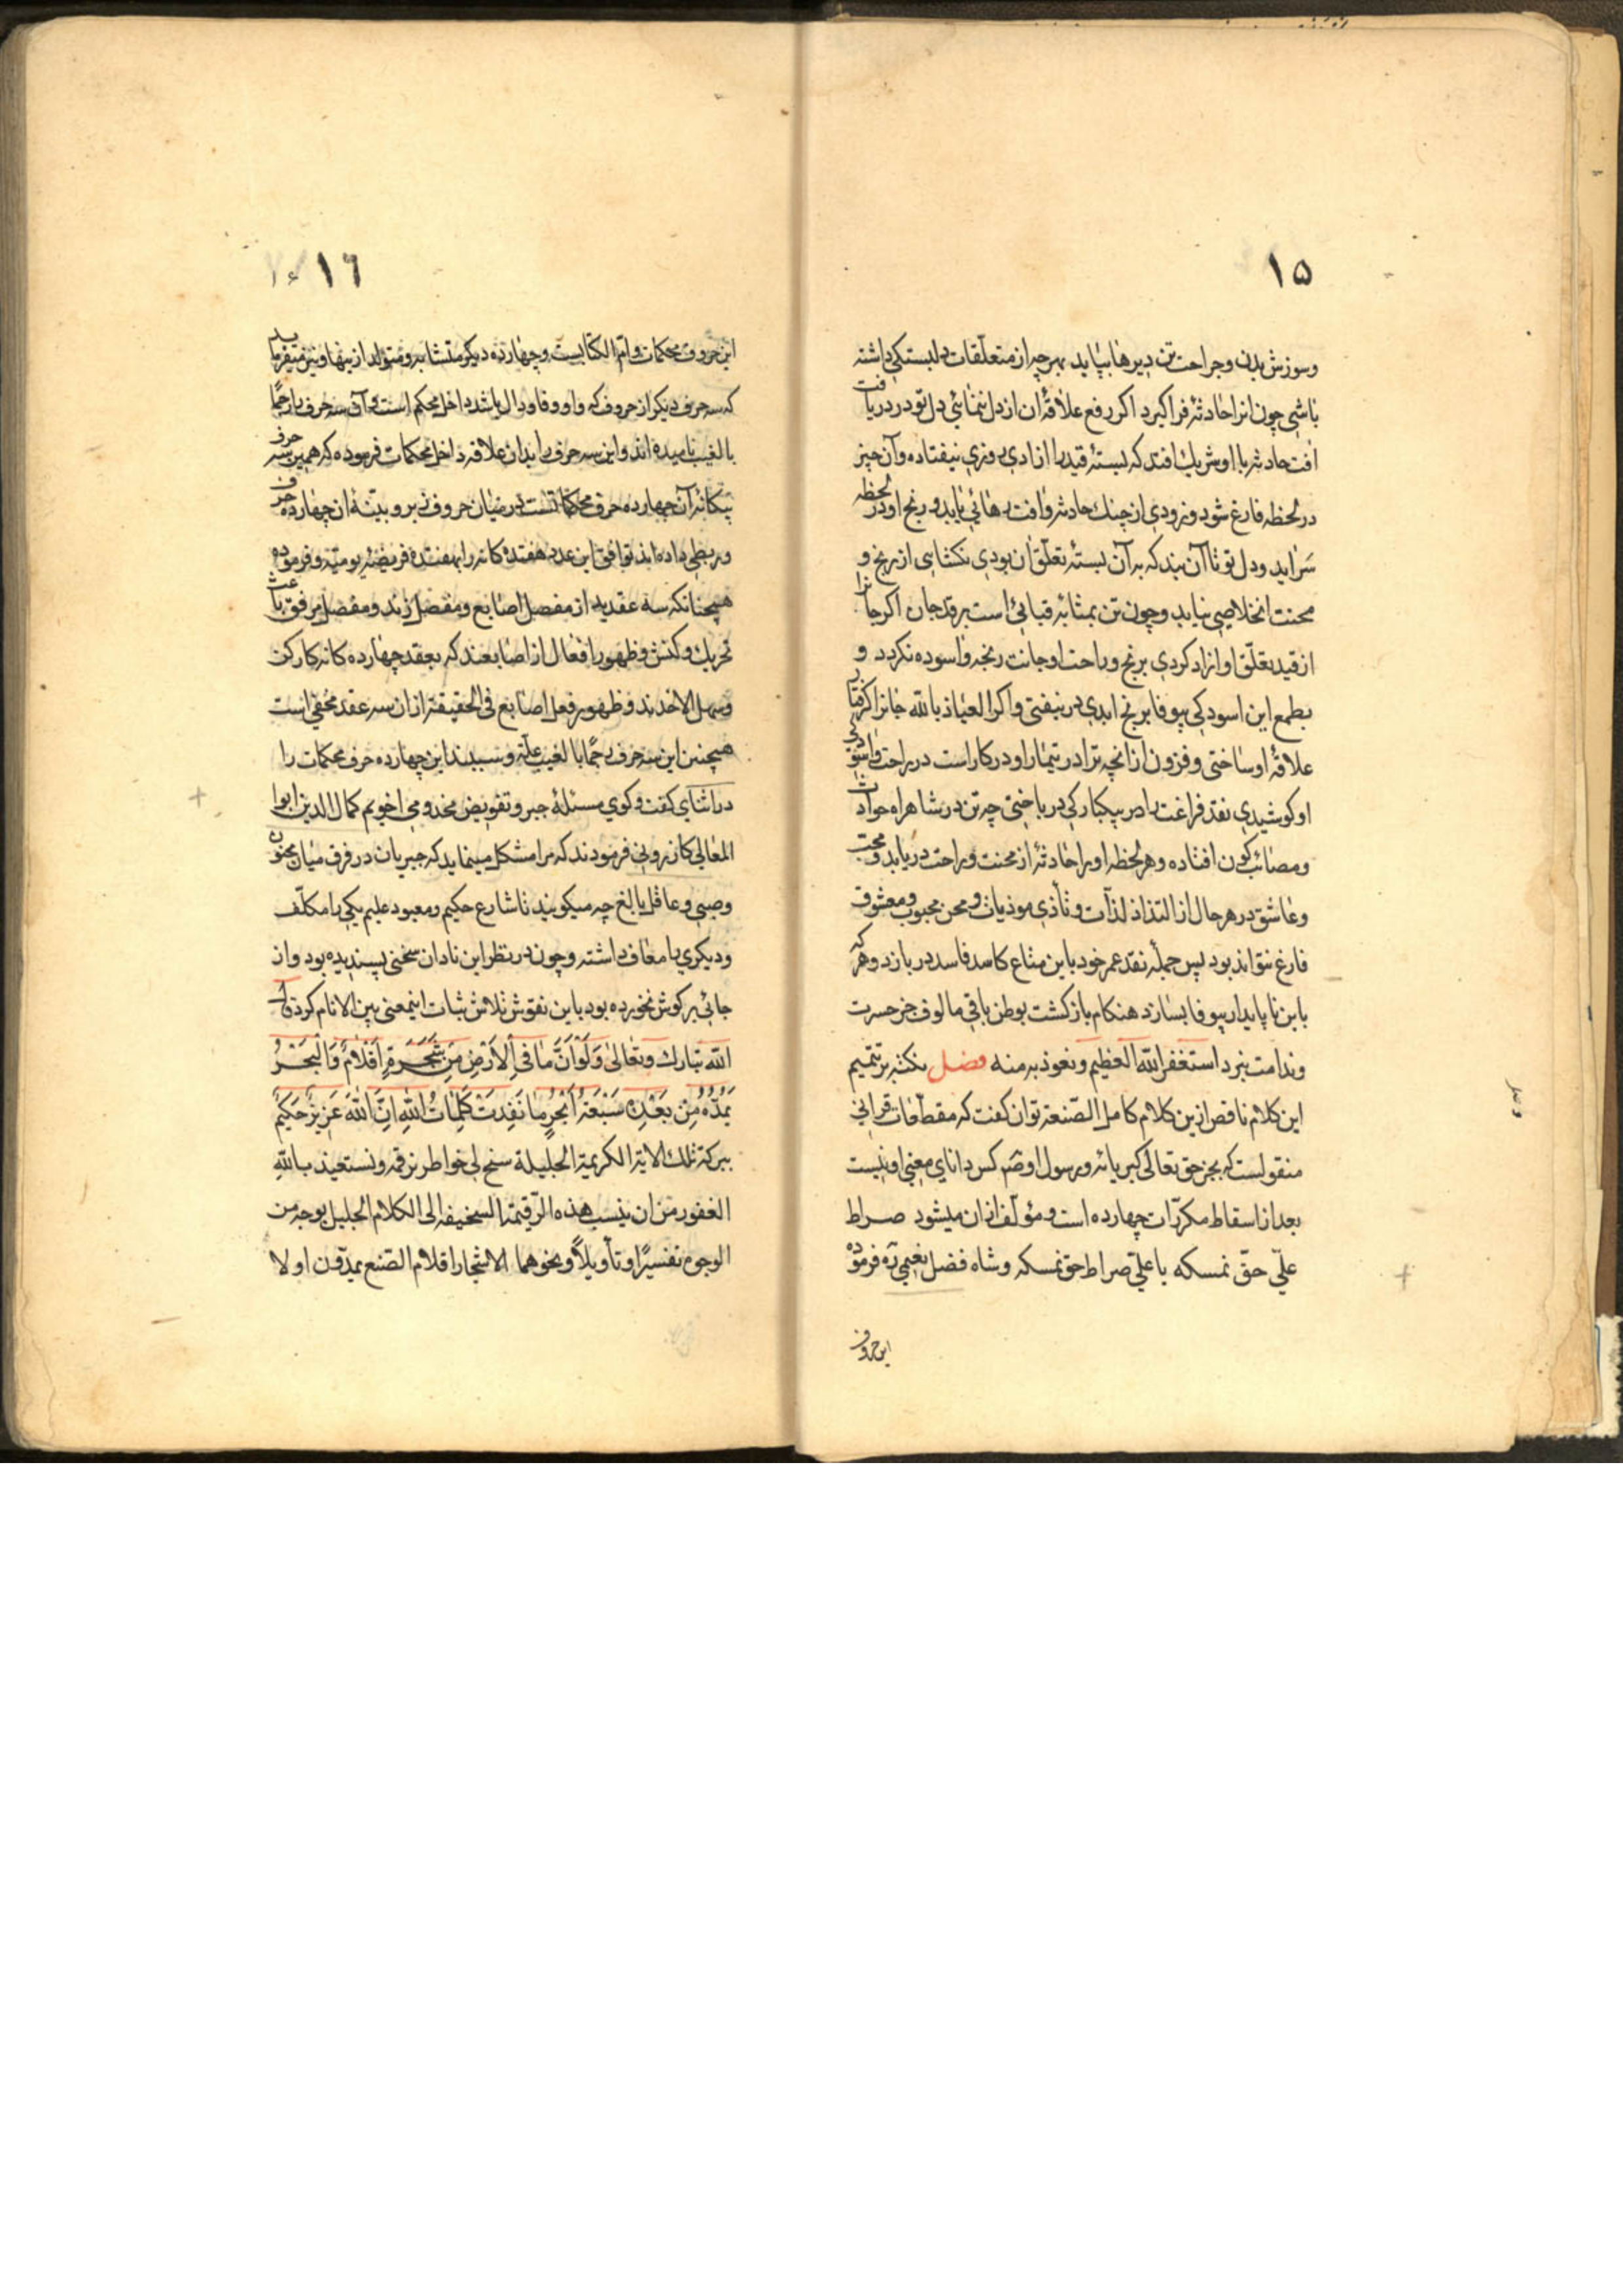 ۱۵
وسوزش بدن وجراحت تن دیرها بپاید بهرچه از متعلّقات دلبستکی داشته
باشی چون انرا حادثهٔ فرا کیرد اکر رفع علاقهٔ ان از دل ننمائی دل تو در دریافت
افت حادثه با او شریك افتد که بستهٔ قیدرا ازادی روزی نیفتاده وآن چیز
در لحظه فارغ شود وبزودی از چنك حادثه وافت رهائی یابد ورنج او در لحظه
سراید ودل تو تا آن بند که بر آن بستهٔ تعلّق ان بودی نکشایی از رنج و
محنت انخلاصی نیابد وچون تن بمثابه قبائی است بر قد جان اکر جانرا
از قید تعلّق او ازاد کردی برنج وراحت او جانت رنجه واسوده نکردد و
بطمع این اسودکی بیوفا برنج ابدی در نیفتی واکر العیاذ بالله جانرا کرفتار
علاقهٔ او ساختی وفزون از انچه ترا در تیمار او در کار است در راحت واسودکی
او کوشیدی نقد فراغت را در یکبارکی در باختی چه تن در شاهراه حوادث
ومصائب کون افتاده وهر لحظه اورا حادثهٔ از محنت وراحت در یابد ومحب
وعاشق در هر حال از التذاذ لذّات وتأذی موذیات ومحن محبوب ومعشوق
فارغ نتواند بود پس جمله نقد عمر خود باین متاع کاسد فاسد در بازد وهر که
با این ناپایدار بیوفا بسازد هنکام بازکشت بوطن باقی مالوف جز حسرت
وندامت نبرد استغفر الله العظیم ونعوذ به منه فصل نکته بر تتمیم
این کلام ناقص ازین کلام کامل الصّنعة توان کفت که مقطّعات قرانی
منقولست که بجز حق تعالی کبریائه ورسول او صم کس دانای معنی او نیست
بعد از اسقاط مکرّرات چهارده است ومؤلّف ازان میشود صراط
علیّ حقّ نمسکه یا علیّ صراط حق نمسکه وشاه فضل نعیمی ره فرموده
این حروف
۱٦
این حروف محکمات وامّ الکتابست وچهارده دیکر متشابه ومتولد از ینها ونیز میفرماید
که سه حرف دیکر از حروف که واو وفا ودال باشد داخل محکم است وآن سه حرف را رجمًا
بالغیب نامیده اند واین سه حرف را بدان علاقه داخل محکمات فرموده که همین سه حرف
بیکانه آن چهارده حرف محکماتست در میان حروف زبر وبیّنهٔ ان چهارده حرف
وربطی داده اند توافق این عدد هفتده کانه را بهفتده فریضهٔ یومیّه وفرموده
همچنانکه سه عقد ید از مفصل اصابع ومفصل زند ومفصل مرفق باعث
تحریك وکنش وظهور افعال از اصابعند که بعقد چهارده کانه کارکن
وسهل الاخذند وظهور فعل اصابع فی الحقیقة از ان سه عقد مخفی است
همچنین این سه حرف رجمًا بالغیب علّة وسببند این چهارده حرف محکمات را
در اثنای کفت وکوی مسئلهٔ جبر وتفویض مخدومی اخویم کمال الدین ابوا
المعالی کازرونی فرمودند که مرا مشکل مینماید که جبریان در فرق میان مجنون
وصبی وعاقل بالغ چه میکویند تا شارع حکیم ومعبود علیم یکی را مکلّف
ودیکری را معاف داشته وچون در نظر این نادان سخنی پسندیده بود واز
جائی بر کوش نخورده بود باین نقوش ثلاش ثبات اینمعنی بین الانام کرد قال
الله تبارك وتعالی وَلَوْ أَنَّ مَا فِی الْأَرْضِ مِن شَجَرَةٍ أَقْلَامٌ وَالْبَحْرُ
یَمُدُّهُ مِن بَعْدِهِ سَبْعَةُ أَبْحُرٍ مَا نَفِدَتْ کَلِمَاتُ اللهِ اِنَّ اللهَ عَزِیزٌ حَکِیمٌ
ببرکة تلك الایة الکریمة الجلیلة سنح لی خواطر نرقمه ونستعیذ بالله
الغفور من ان ینسب هذه الرّقیمة السخیفه الی الکلام الجلیل بوجه من
الوجوه تفسیرًا وتأویلاً ونحوهما الاشجار اقلام الصّنع یمدّون اولا